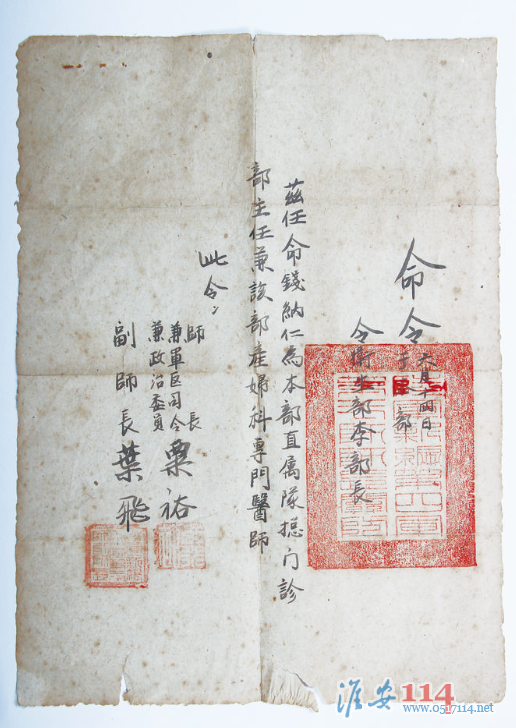 命令
六月十四日
于 部
令衛生部李部長
茲任命錢納仁為本部直属隊搃门診
部主任兼該部產婦科專門醫師
此令
師長
兼軍區司令
兼政治委員
粟裕
副師長葉飛
淮安114
www.0517114.net